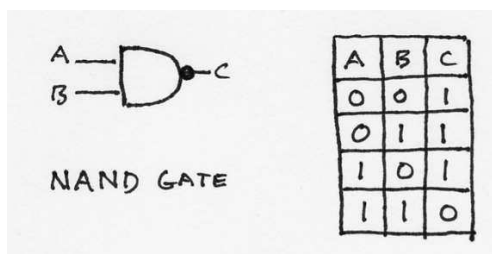 A
B
C
NAND GATE
A B C
0 0 1
0 1 1
1 0 1
1 1 0